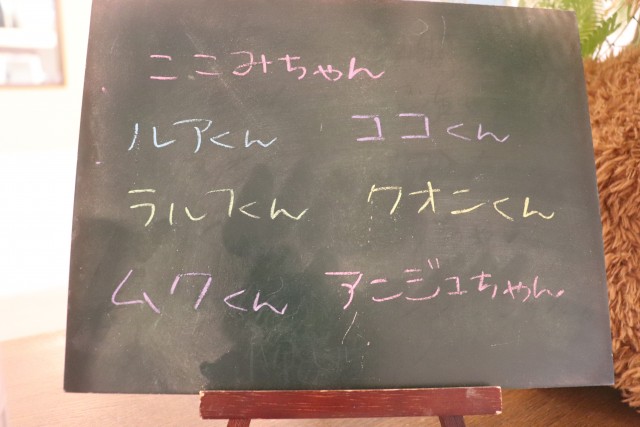 ここみちゃん
ルアくん ココくん
ラルフくん クオンくん
ムクくん アンジュちゃん